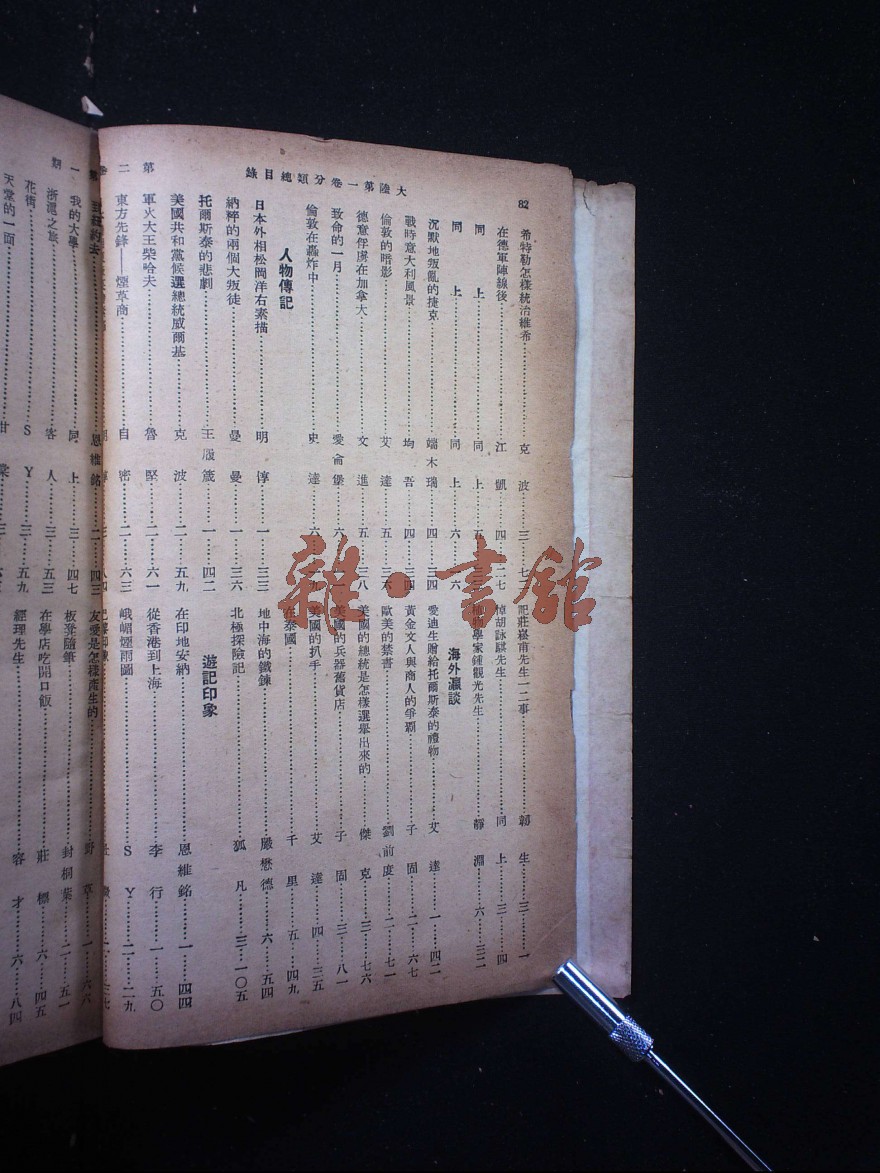 82
大陸第一卷分類總目錄
第二卷 第一期
希特勒怎樣統治維希………克波……三……七
在德軍陣線後………江凱……四……二七
同上………同上……五
同上………同上……六……一六
沉默地叛亂的捷克………端木瑞……四……三四
戰時意大利風景………均吾……四……三四
倫敦的暗影………艾達……五……三六
德意俘虜在加拿大………文進……五……三八
致命的一月………愛侖堡……六
倫敦在轟炸中………史達……六……一九
人物傳記
日本外相松岡洋右素描………明淳……一……三三
納粹的兩個大叛徒………曼曼……一……三六
托爾斯泰的悲劇………王履箴……一……四二
美國共和黨候選總統威爾基………克波……二……五九
軍火大王柴哈夫………魯堅……二……六一
東方先鋒——煙草商………自密……二……六三
記莊崧甫先生一二事………韌生……三……一
悼胡詠騏先生………同上……三……四
植物學家鍾觀光先生………靜淵……六……三二
海外瀛談
愛迪生贈給托爾斯泰的禮物………艾達……一……四二
黃金文人與商人的爭霸………子固……二……六七
歐美的禁書………劉前度……二……七一
美國的總統是怎樣選舉出來的………傑克……三……七六
美國的兵器舊貨店………子固……三……八一
美國的扒手………艾達……四……三五
在泰國………千里……五……四九
地中海的鐵鍊………嚴懋德……六……五四
北極探險記………狐凡……三……一〇五
遊記印象
在印地安納………恩維銘……一……四四
從香港到上海………李行……一……五〇
峨嵋煙雨圖………SY……二……二九
恩維銘……二……四三
我的大學………同上……三……四七
浙滬之旅………客人……三……五三
花街………SY……三……五九
天堂的一面………甘棠……三
友愛是怎樣產生的………野草……一……六六
板凳隨筆………封桐葉……二……五一
在學店吃開口飯………莊標……六……四五
經理先生………容才……六……八四
雜·書館